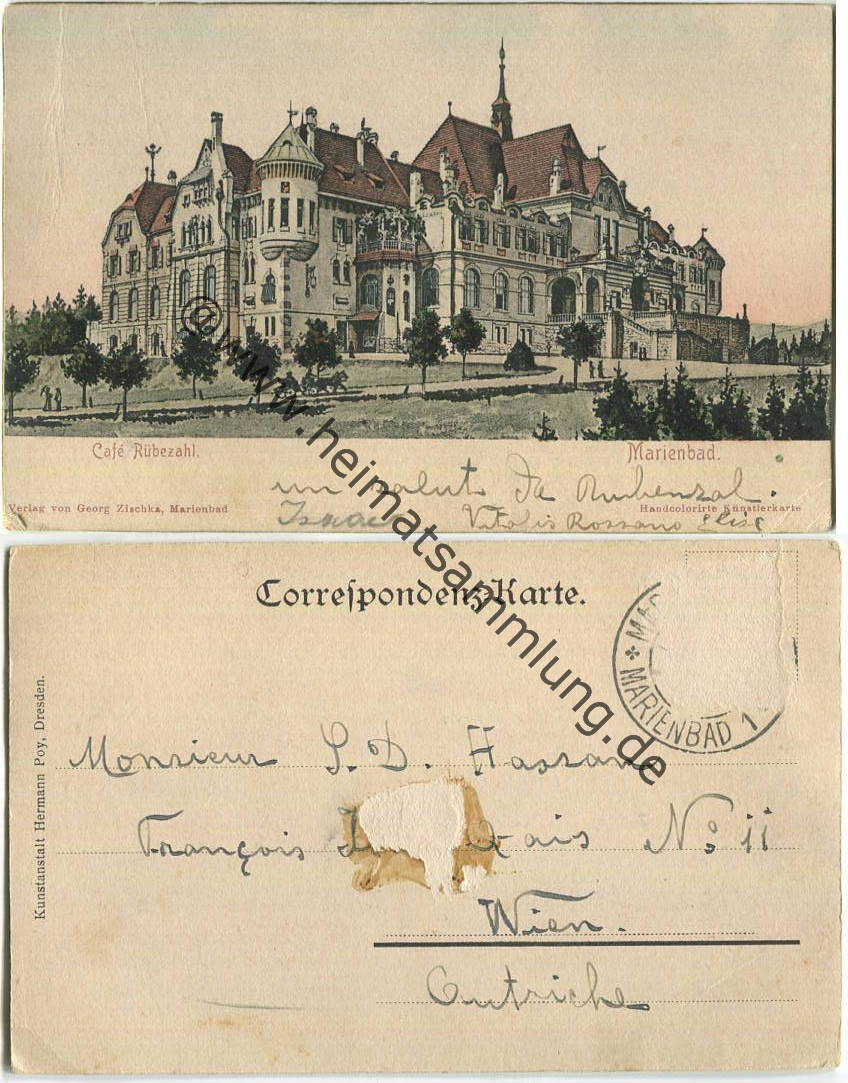 Café Rübezahl.
Marienbad.
un saluto da Rubenzal.
Verlag von Georg Zischka, Marienbad
Handcolorirte Künstlerkarte
Isaac Vitalis Rossano Elise
@www.heimatsammlung.de
Correſpondenz-Karte.
MARIENBAD 1
Kunstanstalt Hermann Poy, Dresden.
Monsieur S. D. Hassan
François Quais No 11
Wien.
Autriche